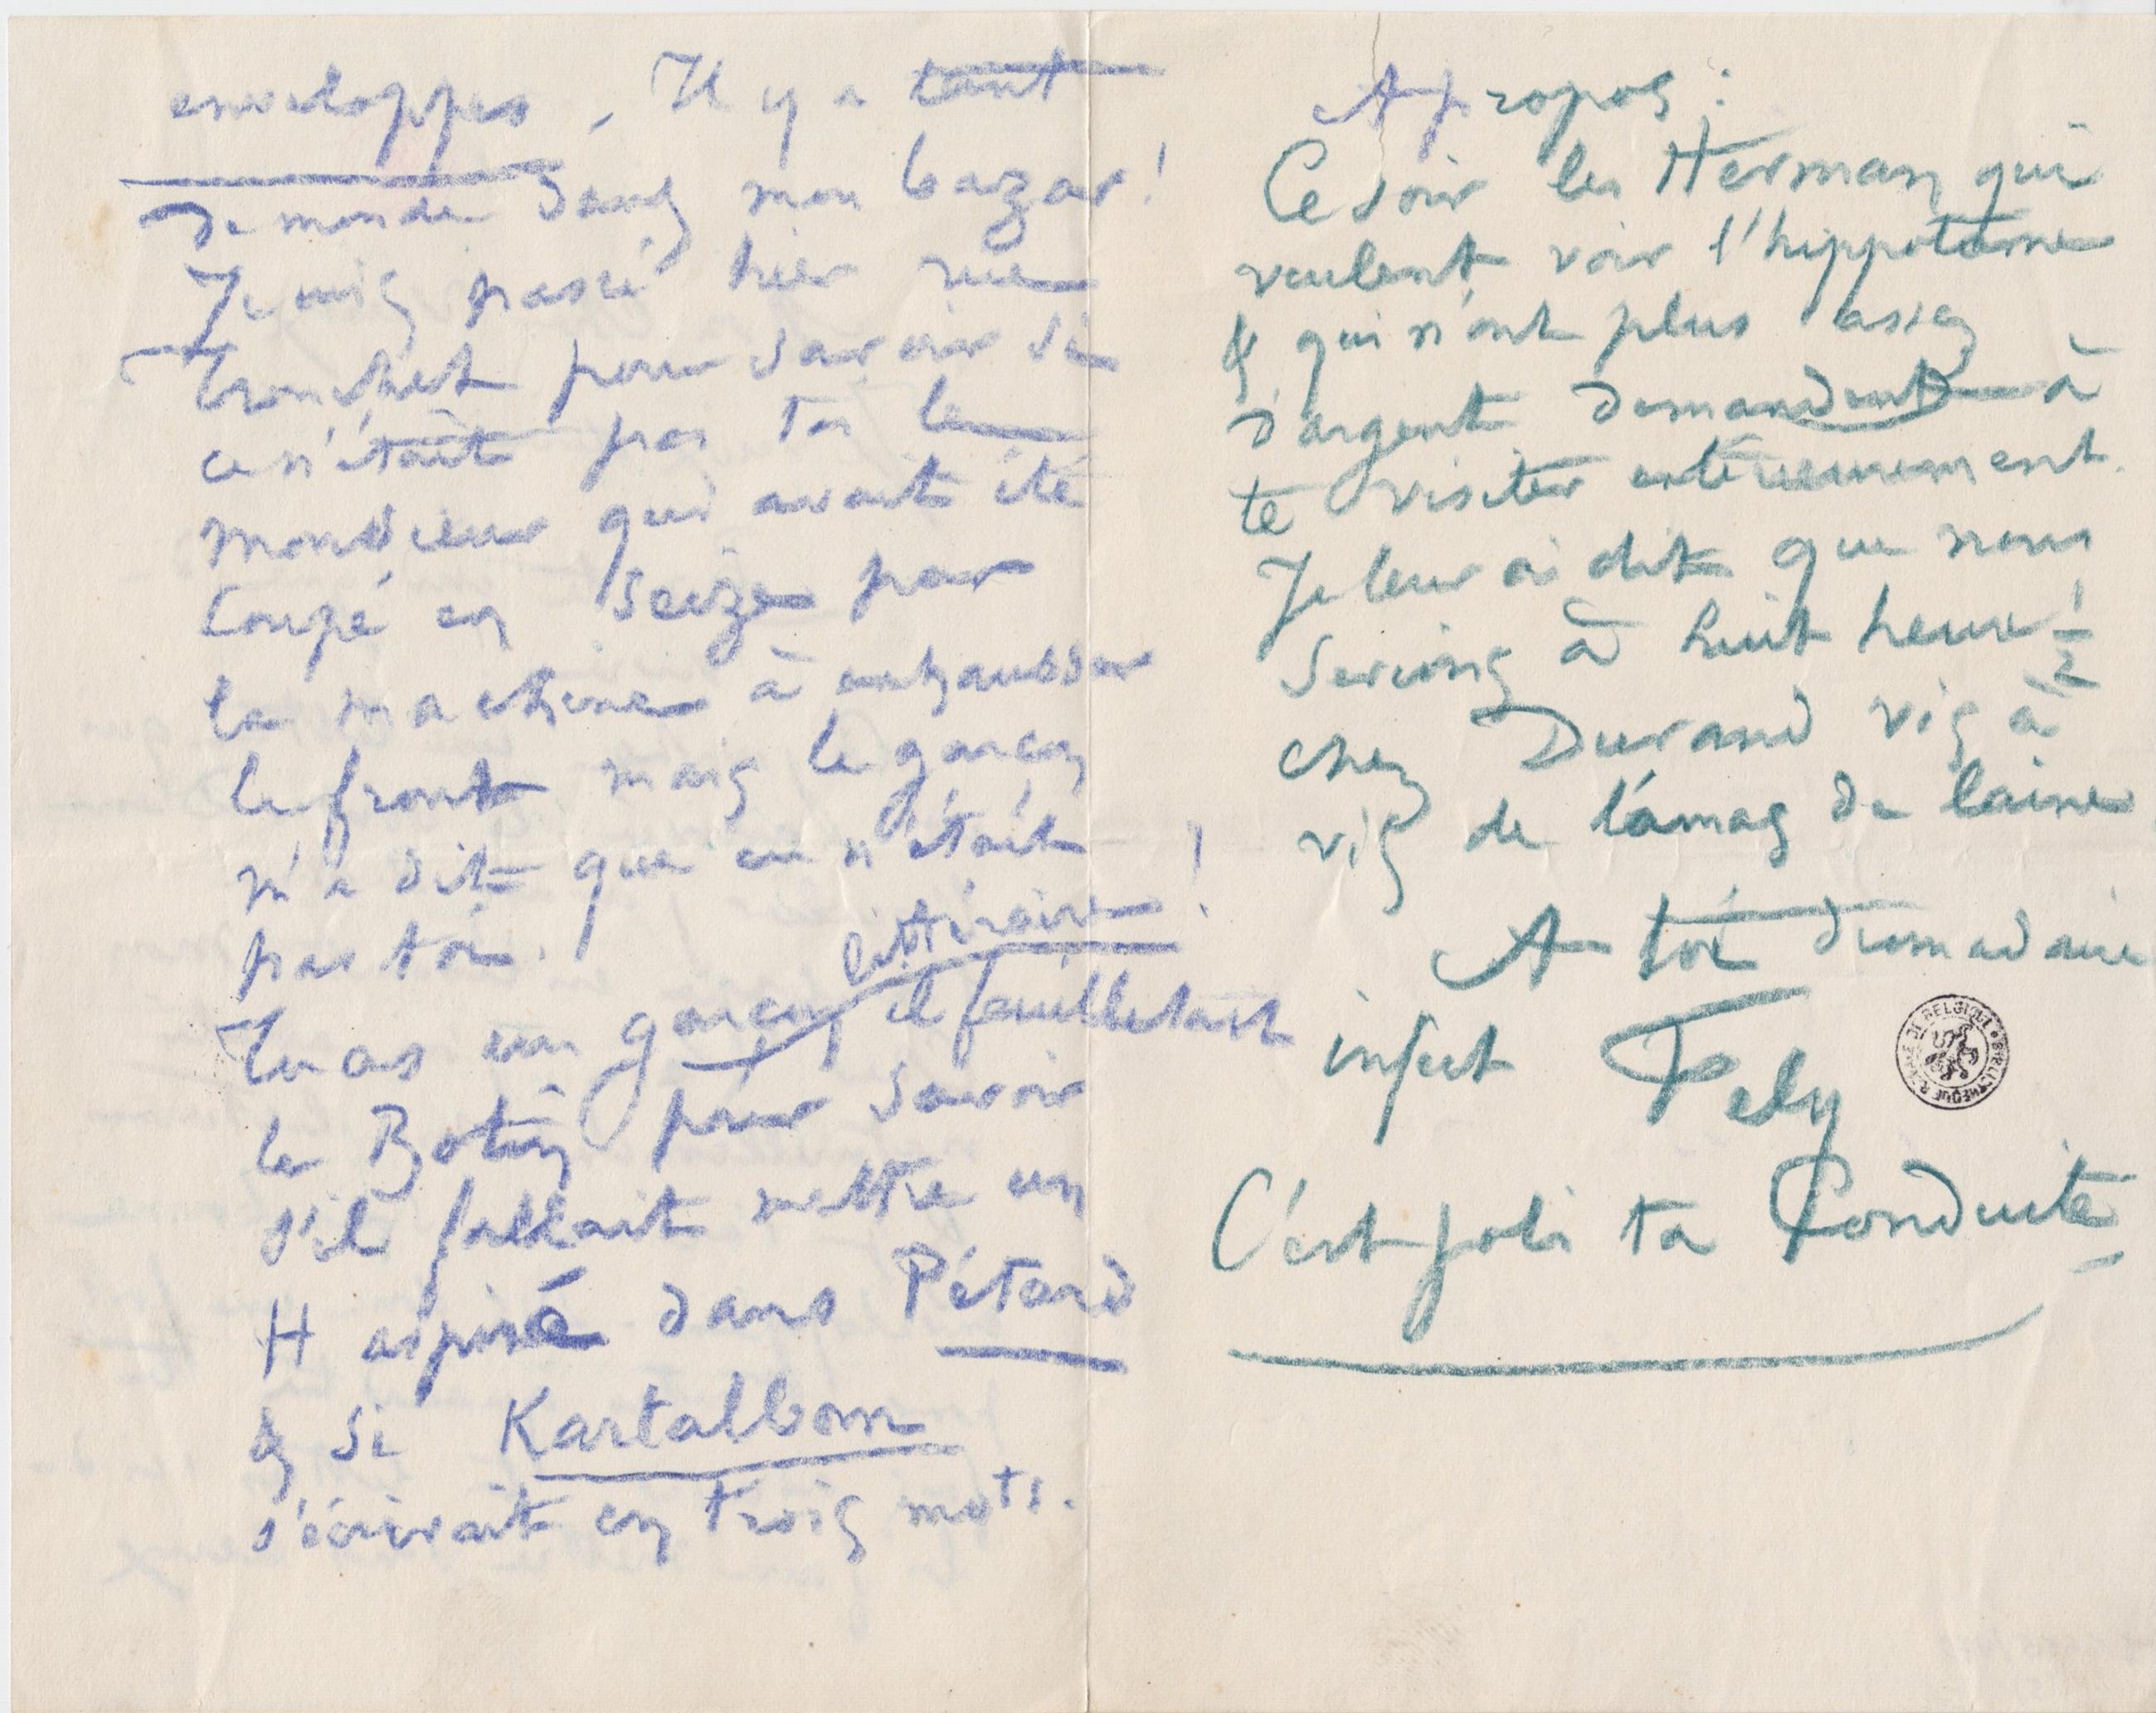 enveloppes. Il y a tant
de monde dans mon bazar!
Je suis passé hier rue
Tronchet pour savoir si
ce n'était pas toi le
monsieur qui avait été
coupé en seize par
la machine à exhausser
le front mais le garçon
m'a dit que ce n'était
pas toi.
littéraire!
Tu as un garçon il feuilletait
le Botin pour savoir
s'il fallait mettre un
H aspiré dans Pétard
& si Kartalbom
s'écrivait en trois mots.
A propos:
Ce soir les Herman qui
veulent voir l'hippotame
& qui n'ont plus assez
d'argent demandent à
te visiter extérieurement.
Je leur ai dit que nous
serions à huit heure ½
chez Durand vis à
vis de l'amas de laine
A toi dromadaire
infect Fély
C'est joli ta Conduite
BIBLIOTHEQUE ROYALE DE BELGIQUE